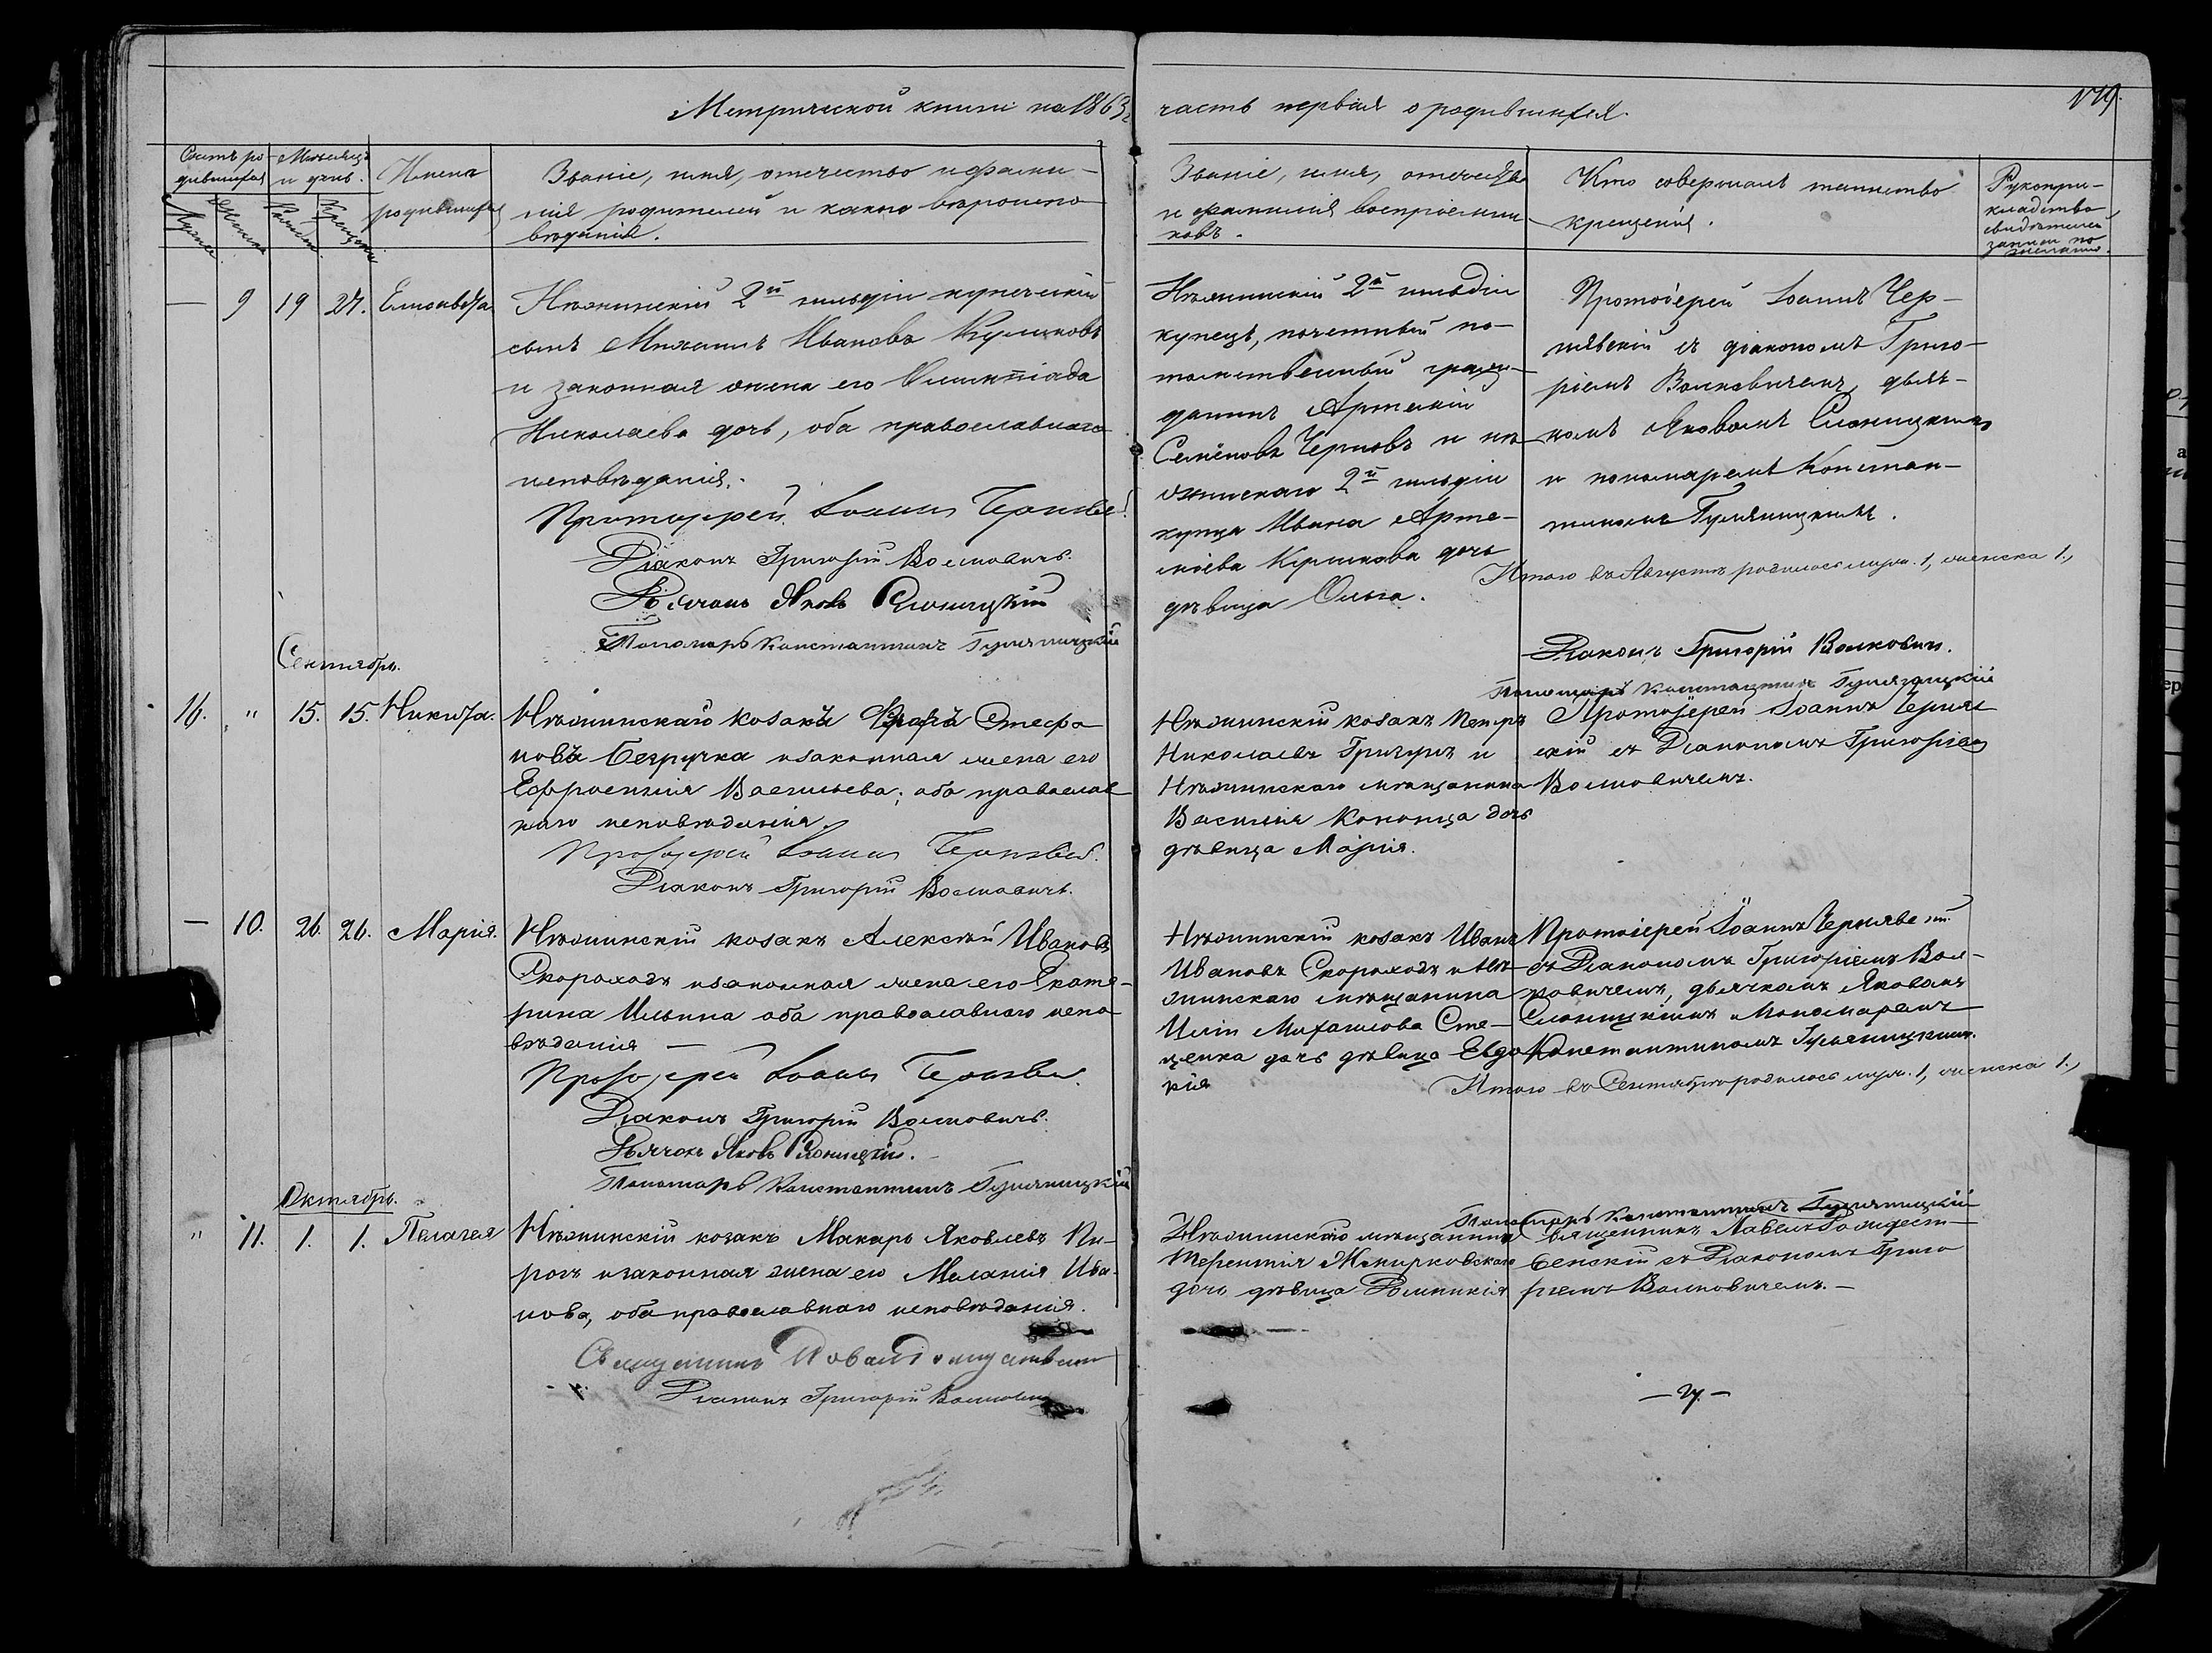 Метрической книги на 1863 г. часть первая о родившихся.
179.
Счетъ ро-
дившихся
Мужеска
Женска
Мѣсяцъ
и день.
Рожден.
Крещен.
Имена
родившихся
Званіе, имя, отчество и фами-
лія родителей и какого вѣроиспо-
вѣданія.
Званіе, имя, отчество
и фамилія воспріемни-
ковъ.
Кто совершалъ таинство
крещенія.
Рукопри-
кладство
свидѣтелей
записи по
желанію.
— 9 19 27. Елисавета
Нѣжинскій 2й гильдіи купеческій
сынъ Михаилъ Ивановъ Куликовъ
и законная жена его Олимпіада
Николаева дочь, оба православнаго
исповѣданія.
Протоіерей Іоаннъ Чернявскій.
Діаконъ Григорій Волковичъ.
Дьячокъ Яковъ Слоницкій
Пономарь Константинъ Гуляницкій
Нѣжинскій 2й гильдіи
купецъ, почетный по-
томственный граж-
данинъ Артемій
Семеновъ Черновъ и нѣ-
жинскаго 2й гильдіи
купца Ивана Арте-
міева Куликова дочь
дѣвица Ольга.
Протоіерей Іоаннъ Чер-
нявскій съ діакономъ Григо-
ріемъ Волковичемъ, дьяч-
комъ Яковомъ Слоницкимъ
и пономаремъ Констан-
тиномъ Гуляницкимъ.
Итого въ Августѣ родилось муж. 1, женска 1.,
Діаконъ Григорій Волковичъ.
Пономарь Константинъ Гуляницкій
Сентябрь.
16. " 15. 15. Никита.
Нѣжинскаго козакъ Стефа
новъ Безручка и законная жена его
Ефросинія Васильева; оба православ
наго исповѣданія.
Протоіерей Іоаннъ Чернявскій.
Діаконъ Григорій Волковичъ.
Нѣжинскій козакъ Петръ
Николаевъ Григуръ и
Нѣжинскаго мѣщанина
Василія Кононца дочь
дѣвица Марія.
Протоіерей Іоаннъ Черняв
скій съ Діакономъ Григоріемъ
Волковичемъ.
— 10. 26. 26. Марія.
Нѣжинскій козакъ Алексѣй Ивановъ
Скороходъ и законная жена его Екате-
рина Ильина оба православнаго испо
вѣданія —
Протоіерей Іоаннъ Чернявскій.
Діаконъ Григорій Волковичъ.
Дьячокъ Яковъ Слоницкій.
Пономарь Константинъ Гуляницкій
Нѣжинскій козакъ Иванъ
Ивановъ Скороходъ и Нѣ-
жинскаго мѣщанина
Иліи Михаилова Сте-
ценка дочь дѣвица Евдо
кія
Протоіерей Іоаннъ Чернявскій
съ Діакономъ Григоріемъ Вол-
ковичемъ, дьячкомъ Яковомъ
Слоницкимъ и Пономаремъ
Константиномъ Гуляницкимъ.
Итого въ Сентябрѣ родилось муж. 1, женска 1.,
Пономарь Константинъ Гуляницкій
Октябрь.
" 11. 1. 1. Пелагея
Нѣжинскій козакъ Макаръ Яковлевъ Пи-
рогъ и законная жена его Меланія Ива-
нова, оба православнаго исповѣданія.
Священникъ Павелъ Рождественскій
Діаконъ Григорій Волковичъ
Нѣжинскаго мѣщанина
Терентія Жмирковскаго
дочь дѣвица Домникія
Священникъ Павелъ Рождест-
венскій съ Діакономъ Григо
ріемъ Волковичемъ. —